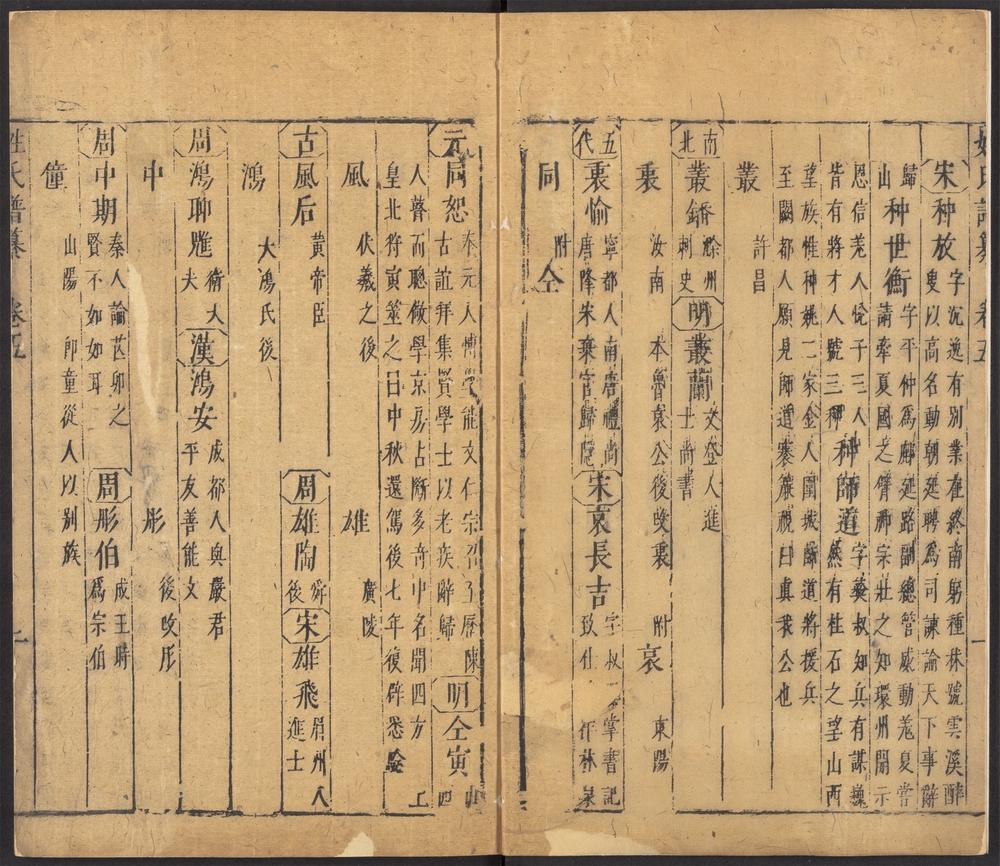 姓氏譜纂 卷五 一
宋 种放 字沉逸有別業在終南躬種秫號雲溪醉
叟以高名動朝廷聘為司諫論天下事辭
歸
山 种世衡 字平仲為鄜延路副總管威動羗夏嘗
請牽夏國之臂神宗壯之知環州開示
恩信羗人悅子三人
皆有將才人號三种 种師道 字彝叔知兵有謀
然有柱石之望山西
望族惟种姚二家金人圍城師道將援兵
至闕都人願見師道褰簾視曰真我公也
叢 許昌
南北 叢鐇 滁州
刺史 明 叢蘭 文登人進
士尚書
裵 汝南 本魯哀公後改裵 附 哀 東陽
五代 裵愉 寧都人南唐禮尚
唐降宋棄官歸隱 宋 哀長吉 字叔 掌書記
致仕 作林杲
同 附 仝
元 同恕 奉元人博學能文仁宗召 歷陳
古誼拜集賢學士以老疾辭歸 明 仝寅 山
人瞽而聰敏學京房占斷多奇中名聞四方
皇北狩寅筮之曰中秋還駕後七年復辟悉驗
風 伏羲之後 雄 廣陵
古 風后 黃帝臣 周 雄陶 舜
後 宋 雄飛 眉州人
進士
鴻 大鴻氏後
周 鴻聊魋 衛大
夫 漢 鴻安 成都人與嚴君
平友善能文
中 彤 後改彤
周 中期 秦人論芒卯之
賢不如如耳 周 彤伯 成王時
為宗伯
僮 山陽 即童從人以別族
姓氏譜纂 卷五 二